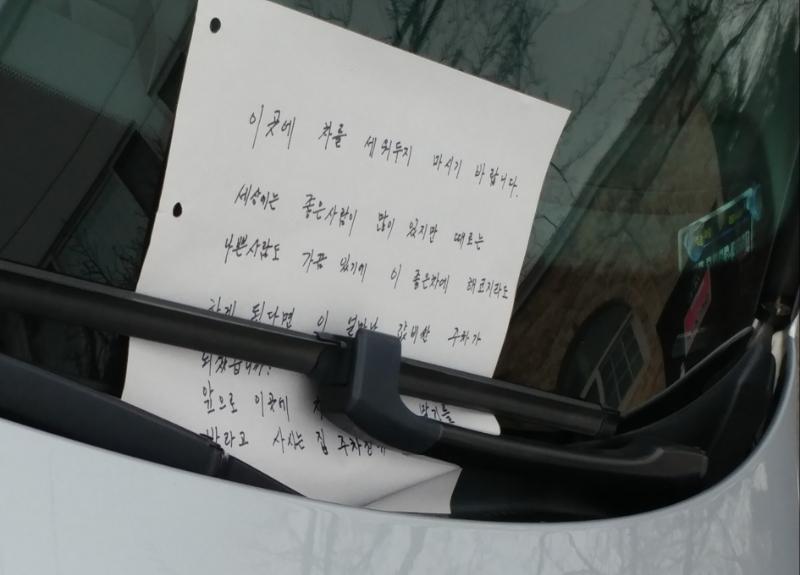 이곳에 차를 세워두지 마시기 바랍니다.
세상에는 좋은사람이 많이 있지만 때로는
나쁜사람도 가끔 있기에 이 좋은차에 해꼬지라도
하게 된다면 이 얼마나 값비싼 주차가
되겠습니까?
앞으로 이곳에
바라고 사시는 집